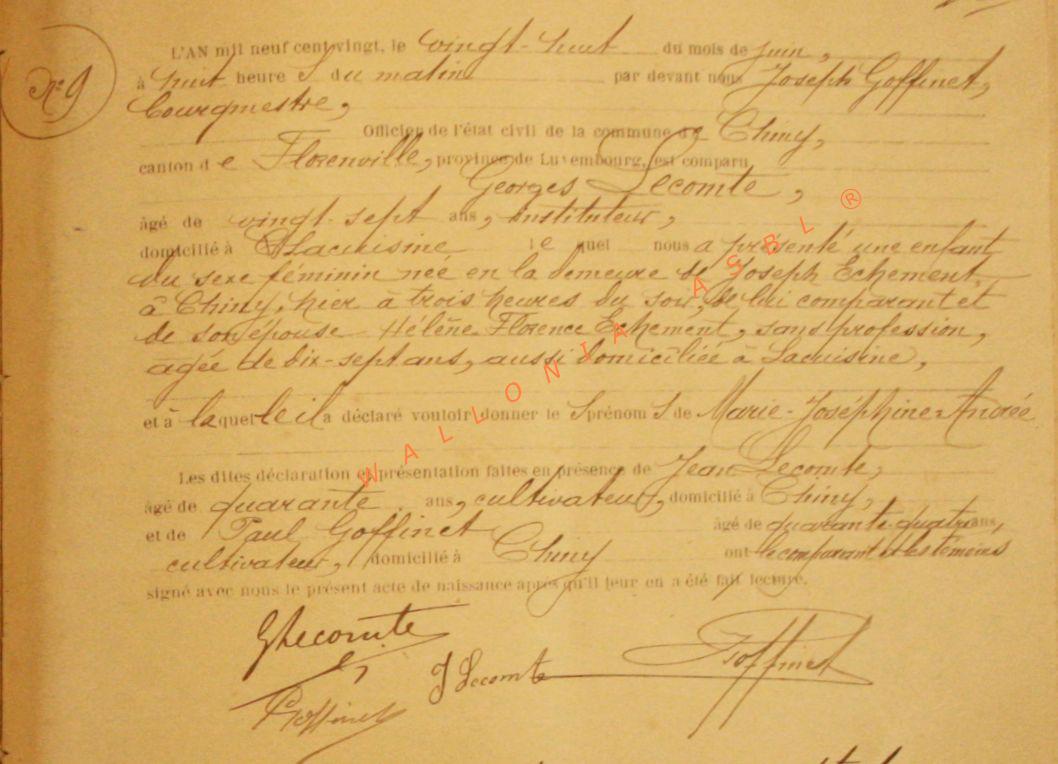 N° 9
L'AN mil neuf cent vingt, le vingt-huit du mois de juin,
à huit heure S du matin par devant nous Joseph Goffinet,
bourgmestre,
Officier de l'état civil de la commune de Chiny,
canton de Florenville, province de Luxembourg, est comparu
Georges Lecomte,
âgé de vingt-sept ans, instituteur,
domicilié à Lacuisine lequel nous a présenté une enfant
du sexe féminin née en la demeure de Joseph Echement
à Chiny, hier à trois heures du soir, de lui comparant et
de son épouse Hélène Florence Echement, sans profession,
agée de dix-sept ans, aussi domiciliée à Lacuisine,
et à laquelle il a déclaré vouloir donner le S prénom S de Marie-Joséphine-Andrée
Les dites déclaration et présentation faites en présence de Jean Lecomte,
âgé de quarante ans, cultivateur, domicilié à Chiny,
et de Paul Goffinet âgé de quarante-quatre ans,
cultivateur, domicilié à Chiny ont le comparant et les témoins
signé avec nous le présent acte de naissance après qu'il leur en a été fait lecture.
GLecomte
J Lecomte
Goffinet
PGoffinet
WALLONIA ASBL ®